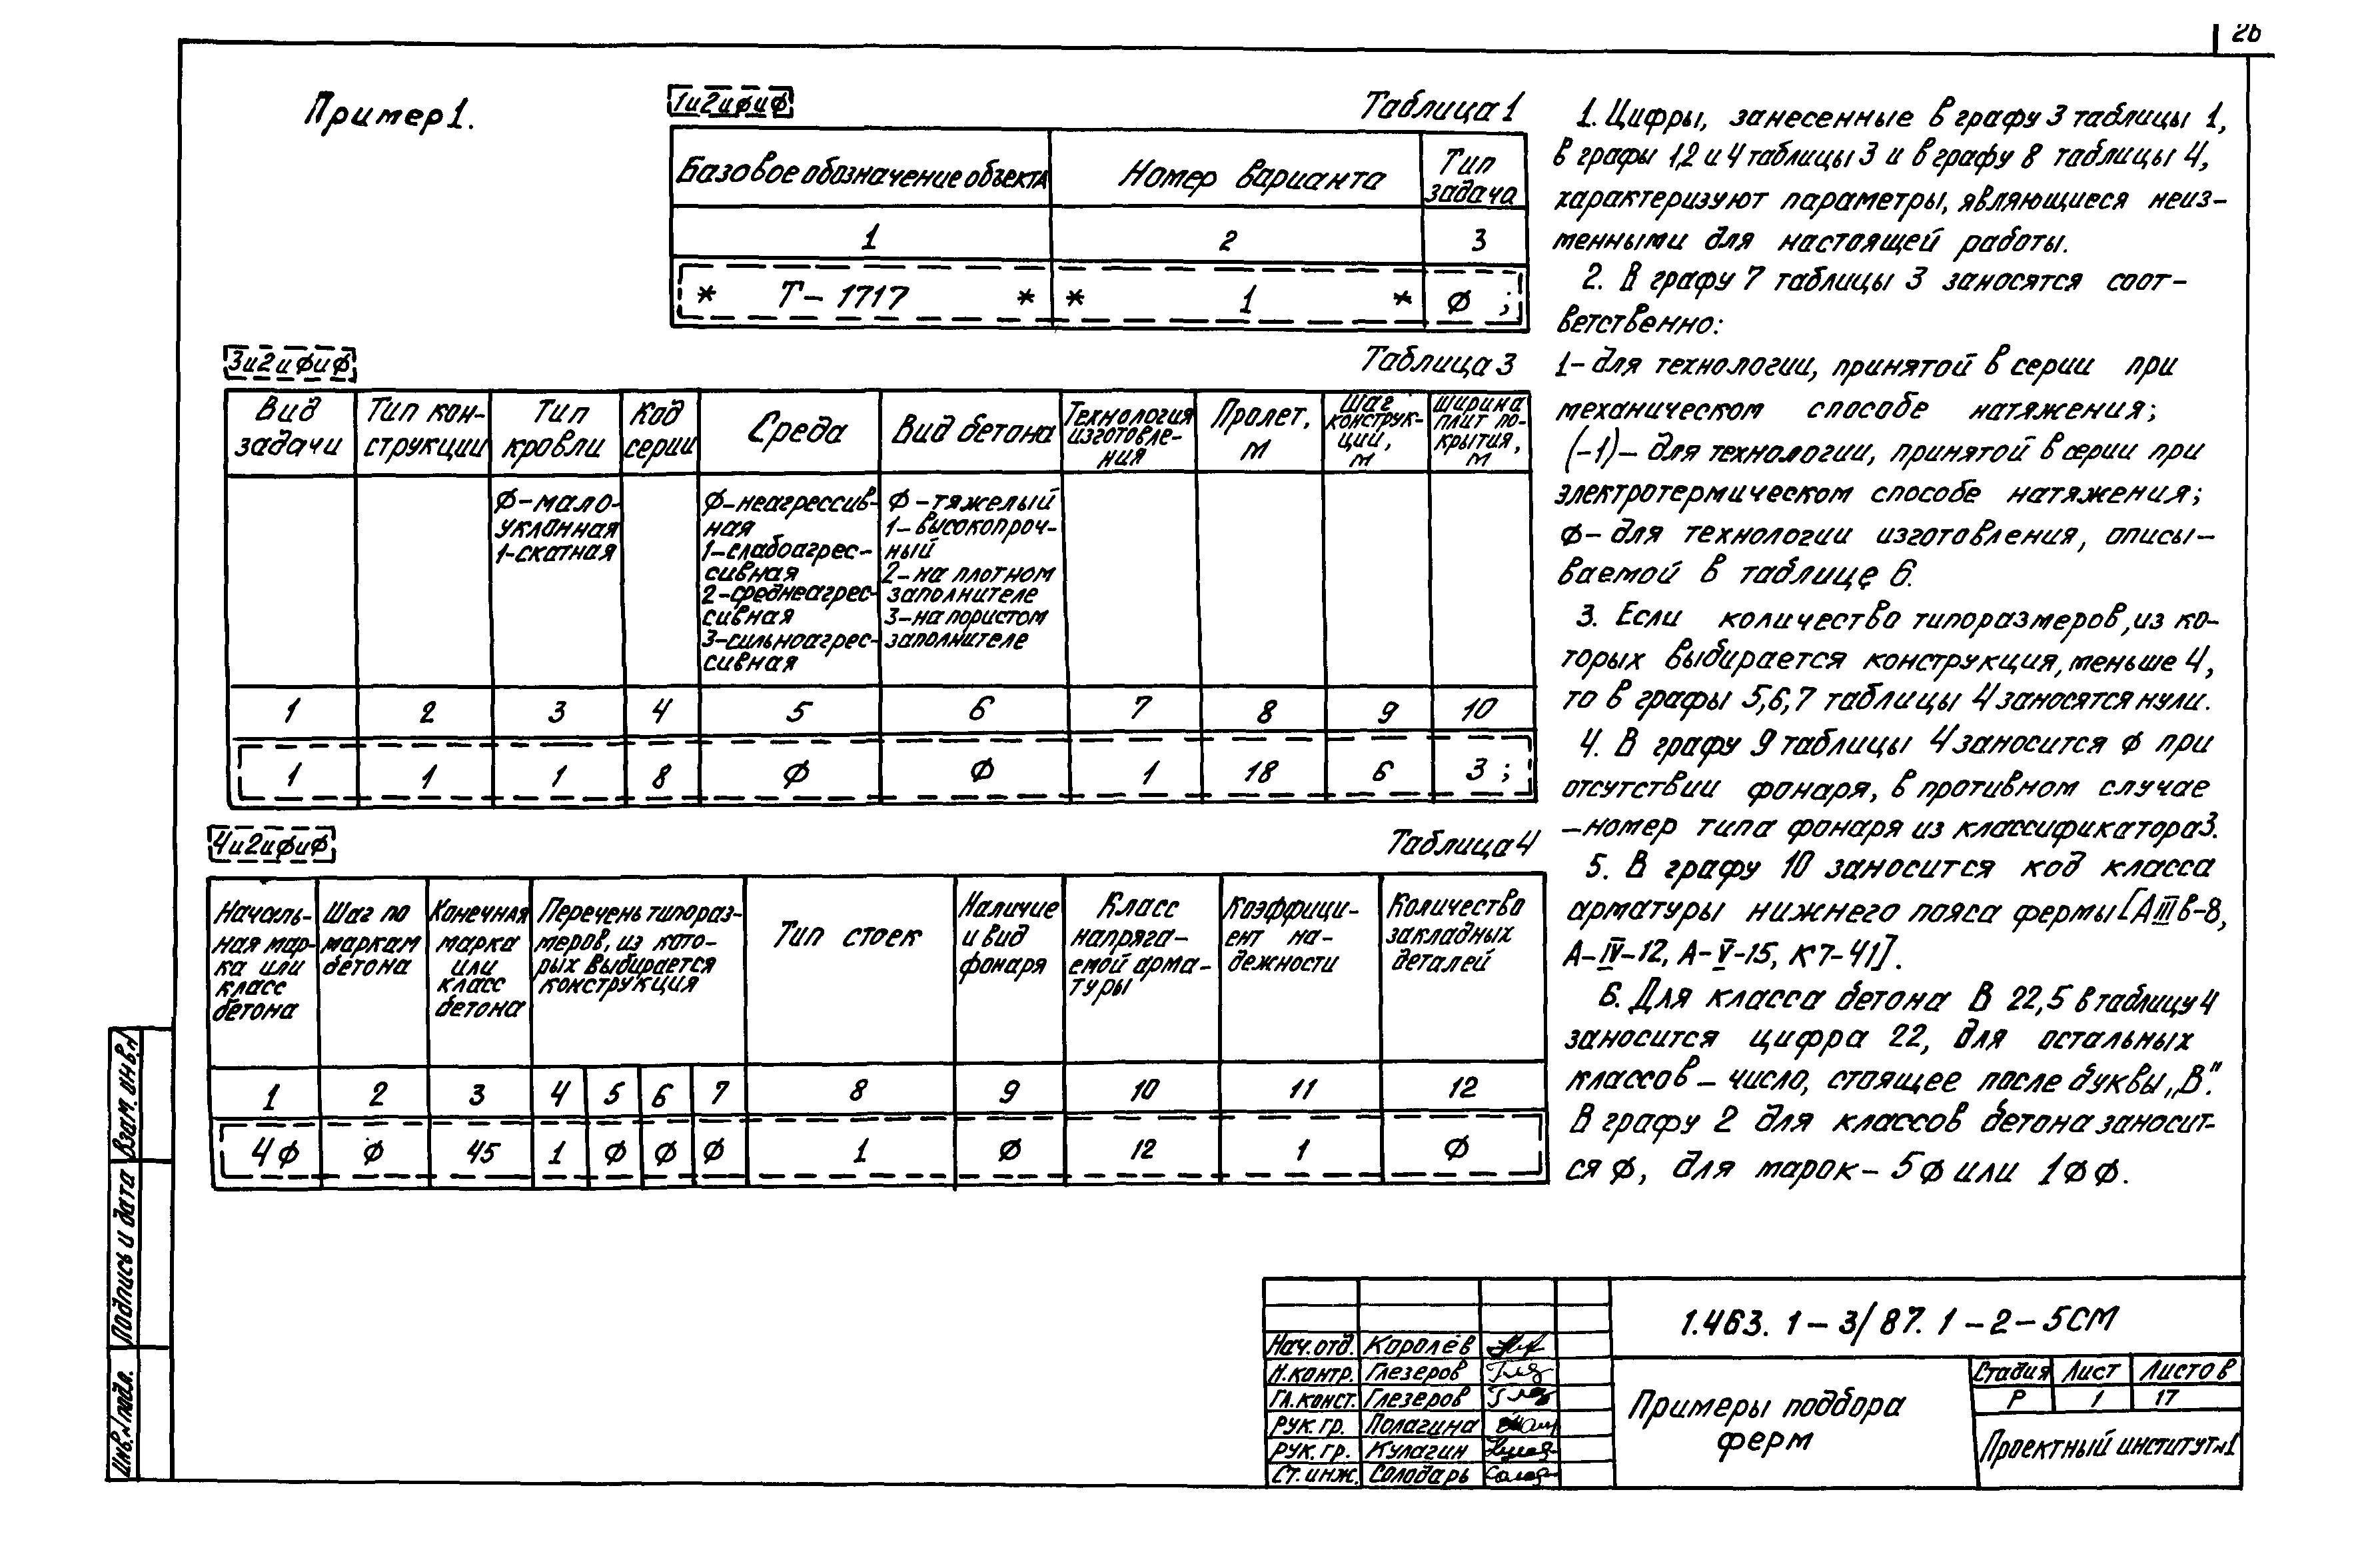 26
Пример 1.
1и2иφиφ
Таблица 1
Базовое обозначение объекта
Номер варианта
Тип
задача
1
2
3
* Т-1717 *
* 1 *
φ ;
3и2иφиφ
Таблица 3
Вид
задачи
Тип кон-
струкции
Тип
кровли
Код
серии
Среда
Вид бетона
Технология
изготовле-
ния
Пролет,
м
Шаг
конструк-
ции,
м
Ширина
плит по-
крытия,
м
φ-мало-
уклонная
1-скатная
φ-неагрессив-
ная
1-слабоагрес-
сивная
2-среднеагрес-
сивная
3-сильноагрес-
сивная
φ-тяжелый
1-высокопроч-
ный
2-на плотном
заполнителе
3-на пористом
заполнителе
1 2 3 4 5 6 7 8 9 10
1 1 1 8 φ φ 1 18 6 3 ;
4и2иφиφ
Таблица 4
Началь-
ная мар-
ка или
класс
бетона
Шаг по
маркам
бетона
Конечная
марка
или
класс
бетона
Перечень типораз-
меров, из кото-
рых выбирается
конструкция
Тип стоек
Наличие
и вид
фонаря
Класс
напряга-
емой арма-
туры
Коэффици-
ент на-
дежности
Количество
закладных
деталей
1 2 3 4 5 6 7 8 9 10 11 12
4φ φ 45 1 φ φ φ 1 φ 12 1 φ
1. Цифры, занесенные в графу 3 таблицы 1,
в графы 1,2 и 4 таблицы 3 и в графу 8 таблицы 4,
характеризуют параметры, являющиеся неиз-
менными для настоящей работы.
2. В графу 7 таблицы 3 заносятся соот-
ветственно:
1- для технологии, принятой в серии при
механическом способе натяжения;
(-1)- для технологии, принятой в серии при
электротермическом способе натяжения;
φ- для технологии изготовления, описы-
ваемой в таблице 6.
3. Если количество типоразмеров, из ко-
торых выбирается конструкция, меньше 4,
то в графы 5,6,7 таблицы 4 заносятся нули.
4. В графу 9 таблицы 4 заносится φ при
отсутствии фонаря, в противном случае
-номер типа фонаря из классификатора 3.
5. В графу 10 заносится код класса
арматуры нижнего пояса фермы [АIIIв-8,
А-IV-12, А-V-15, К7-41].
6. Для класса бетона В 22,5 в таблицу 4
заносится цифра 22, для остальных
классов - число, стоящее после буквы „В".
В графу 2 для классов бетона заносит-
ся φ, для марок - 5φ или 1φφ.
Взам. инв.№
Подпись и дата
Инв.№ подл.
Нач.отд. Королёв
Н.контр. Глезеров
Гл.конст. Глезеров
Рук. гр. Полагина
Рук. гр. Кулагин
Ст. инж. Солодарь
1.463. 1-3/87. 1-2-5СМ
Примеры подбора
ферм
Стадия Лист Листов
Р 1 17
Проектный институт №1